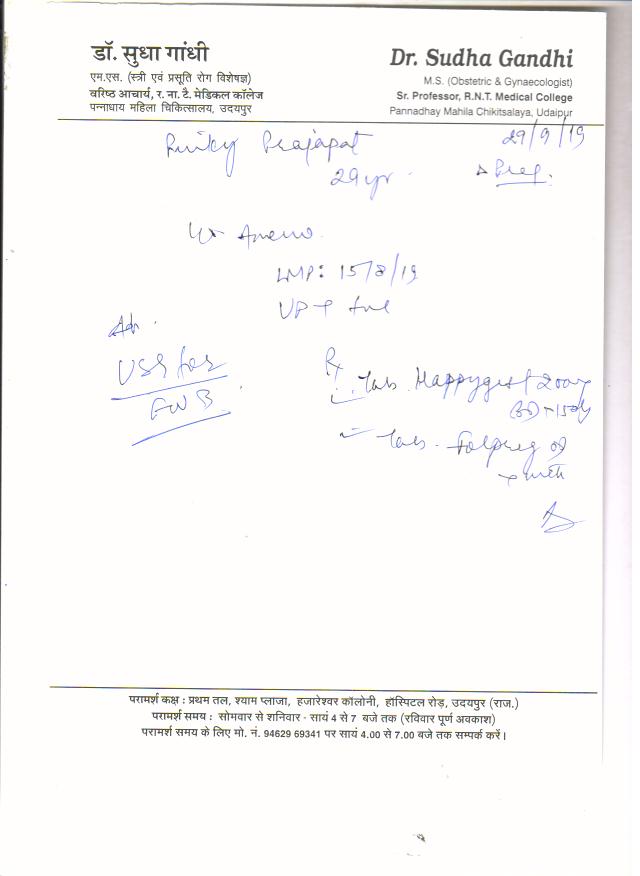 डॉ. सुधा गांधी
एम.एस. (स्त्री एवं प्रसूति रोग विशेषज्ञ)
वरिष्ठ आचार्य, र. ना. टै. मेडिकल कॉलेज
पन्नाधाय महिला चिकित्सालय, उदयपुर
Dr. Sudha Gandhi
M.S. (Obstetric & Gynaecologist)
Sr. Professor, R.N.T. Medical College
Pannadhay Mahila Chikitsalaya, Udaipur
29/9/19
Prajapat
29 yr
Preg.
LMP: 15/8/19
UPT +ve
USG for
FWB
Rx
Tab. Happygest 200mg
Tab. Folpreg
परामर्श कक्ष : प्रथम तल, श्याम प्लाजा, हजारेश्वर कॉलोनी, हॉस्पिटल रोड़, उदयपुर (राज.)
परामर्श समय : सोमवार से शनिवार - सायं 4 से 7 बजे तक (रविवार पूर्ण अवकाश)
परामर्श समय के लिए मो. नं. 94629 69341 पर सायं 4.00 से 7.00 बजे तक सम्पर्क करें।